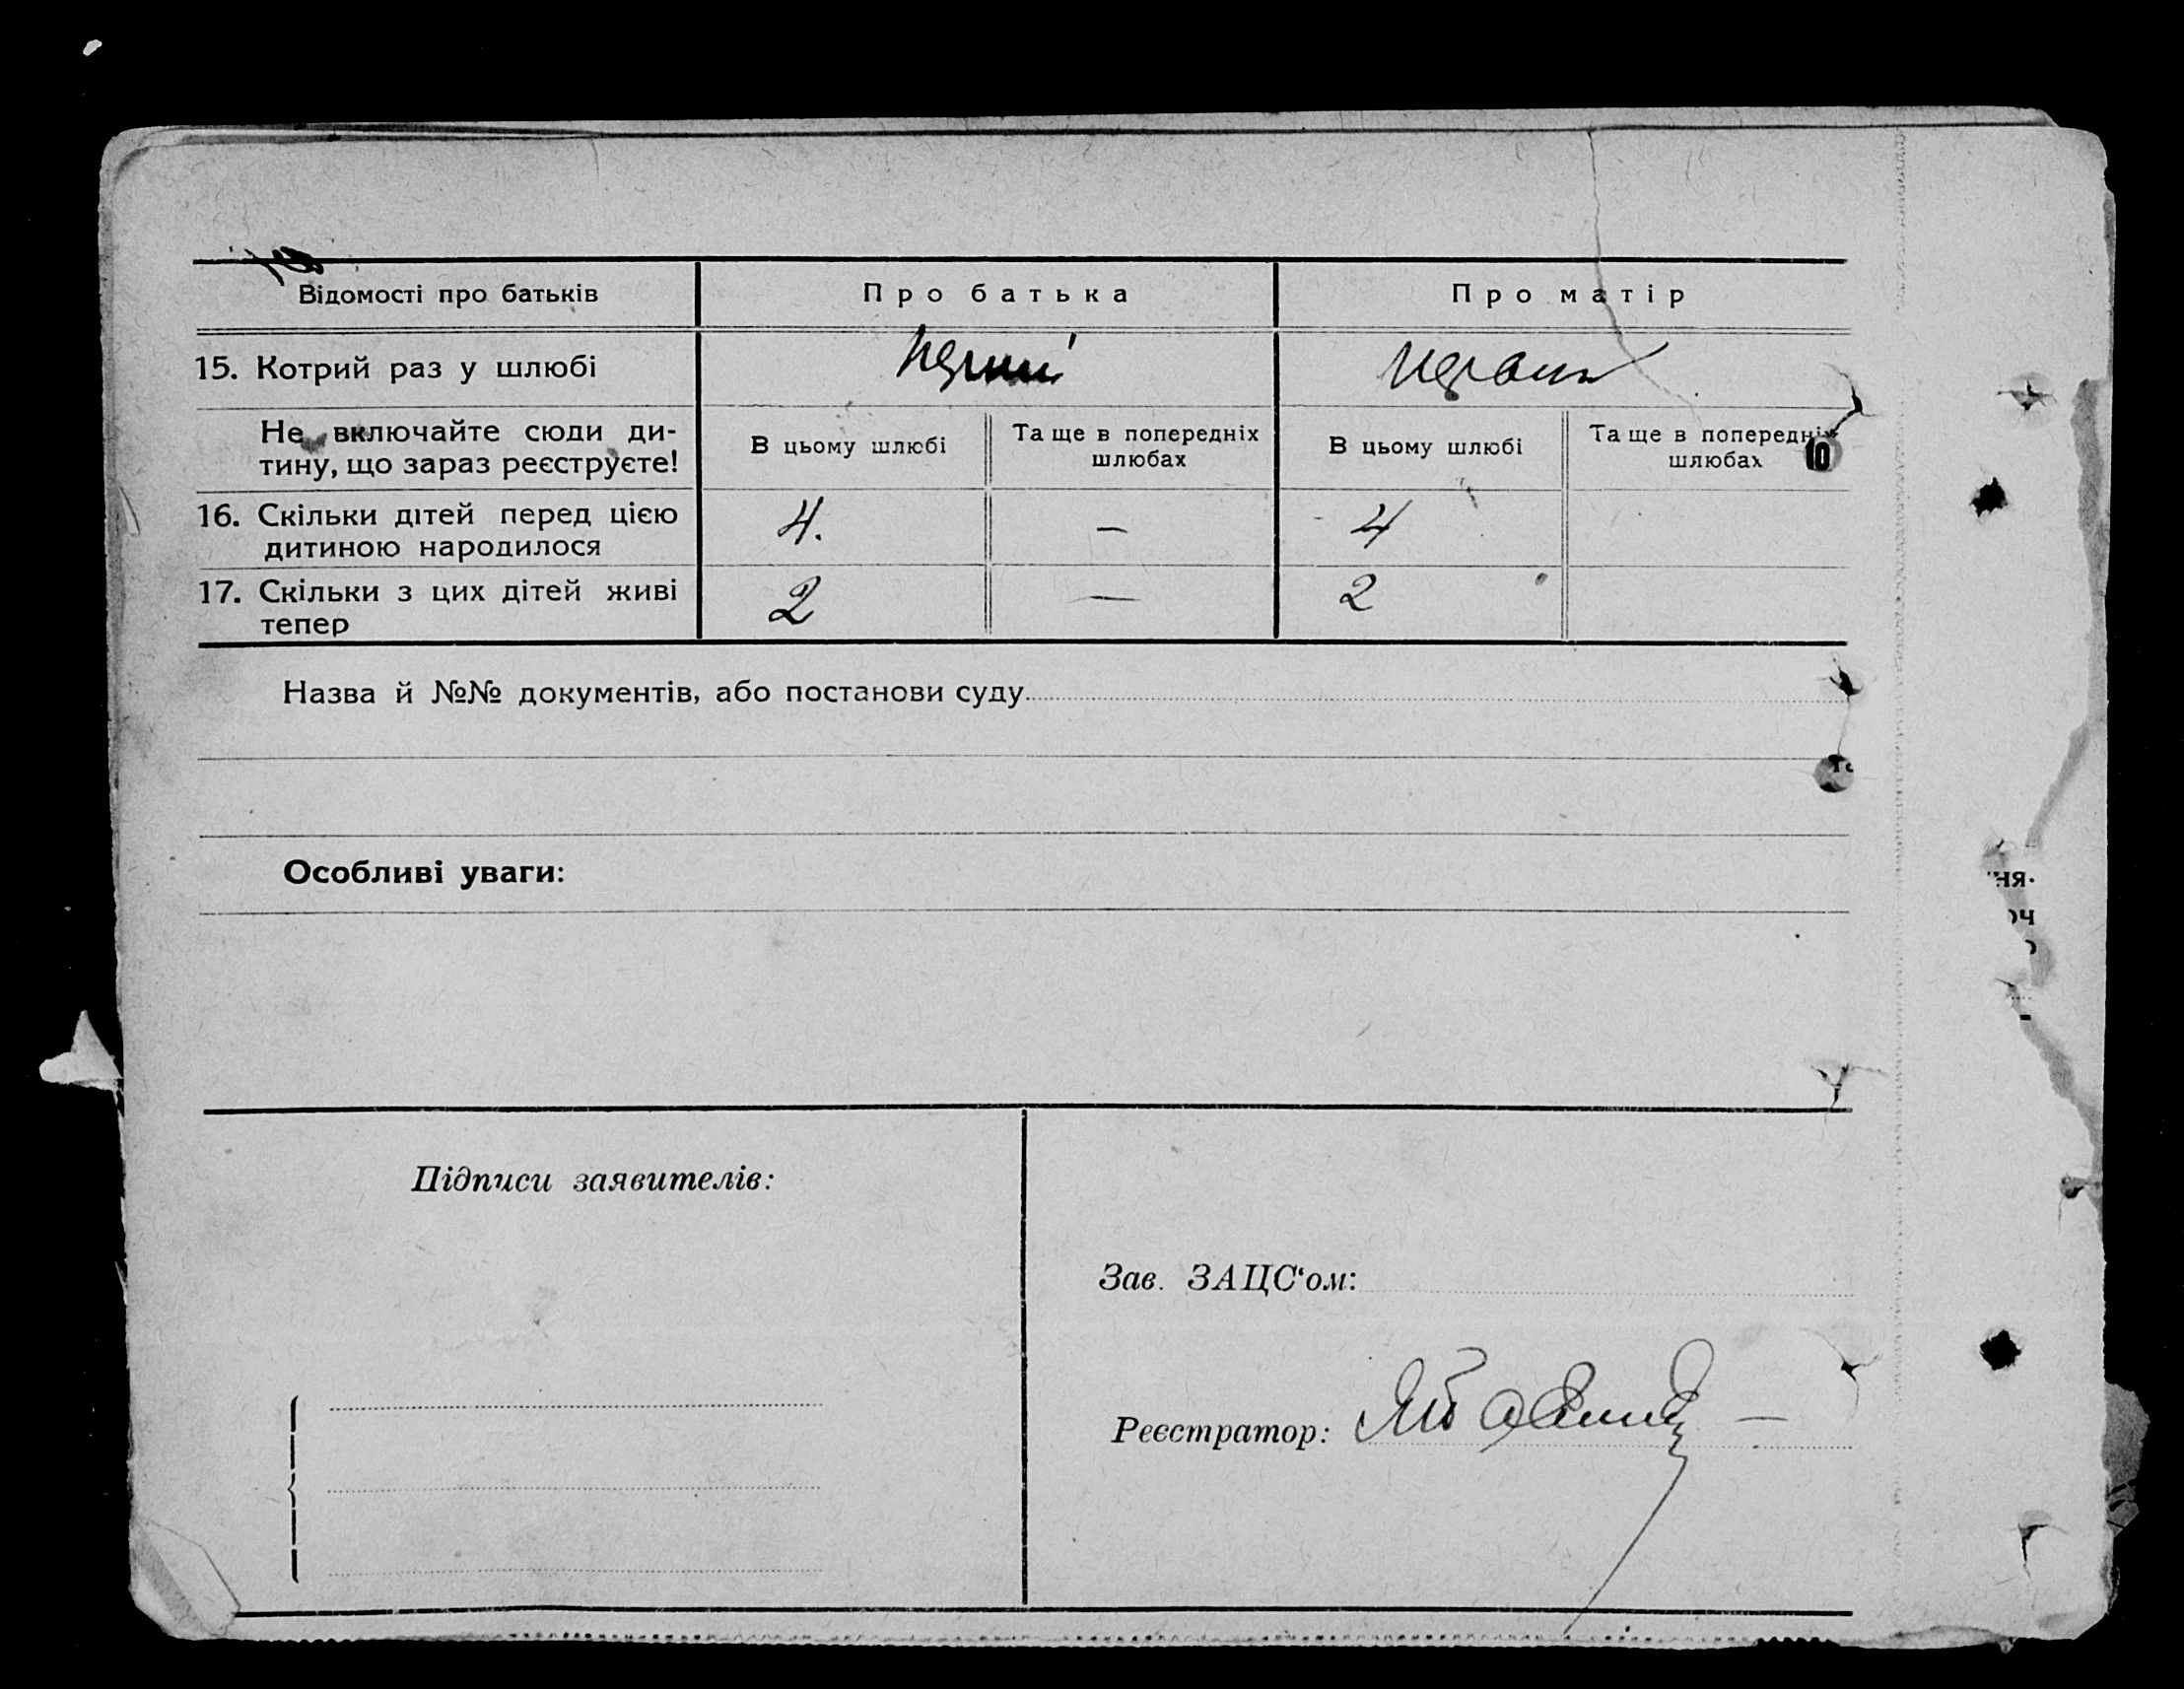 Відомості про батьків
Про батька
Про матір
15. Котрий раз у шлюбі
перший
Не включайте сюди ди-
тину, що зараз реєструєте!
В цьому шлюбі
Та ще в попередніх
шлюбах
В цьому шлюбі
Та ще в попередніх
шлюбах
10
16. Скільки дітей перед цією
дитиною народилося
4.
—
4
17. Скільки з цих дітей живі
тепер
2
—
2
Назва й №№ документів, або постанови суду
Особливі уваги:
ня.
оч
Підписи заявителів:
Зав. ЗАЦС‘ом:
Реєстратор: